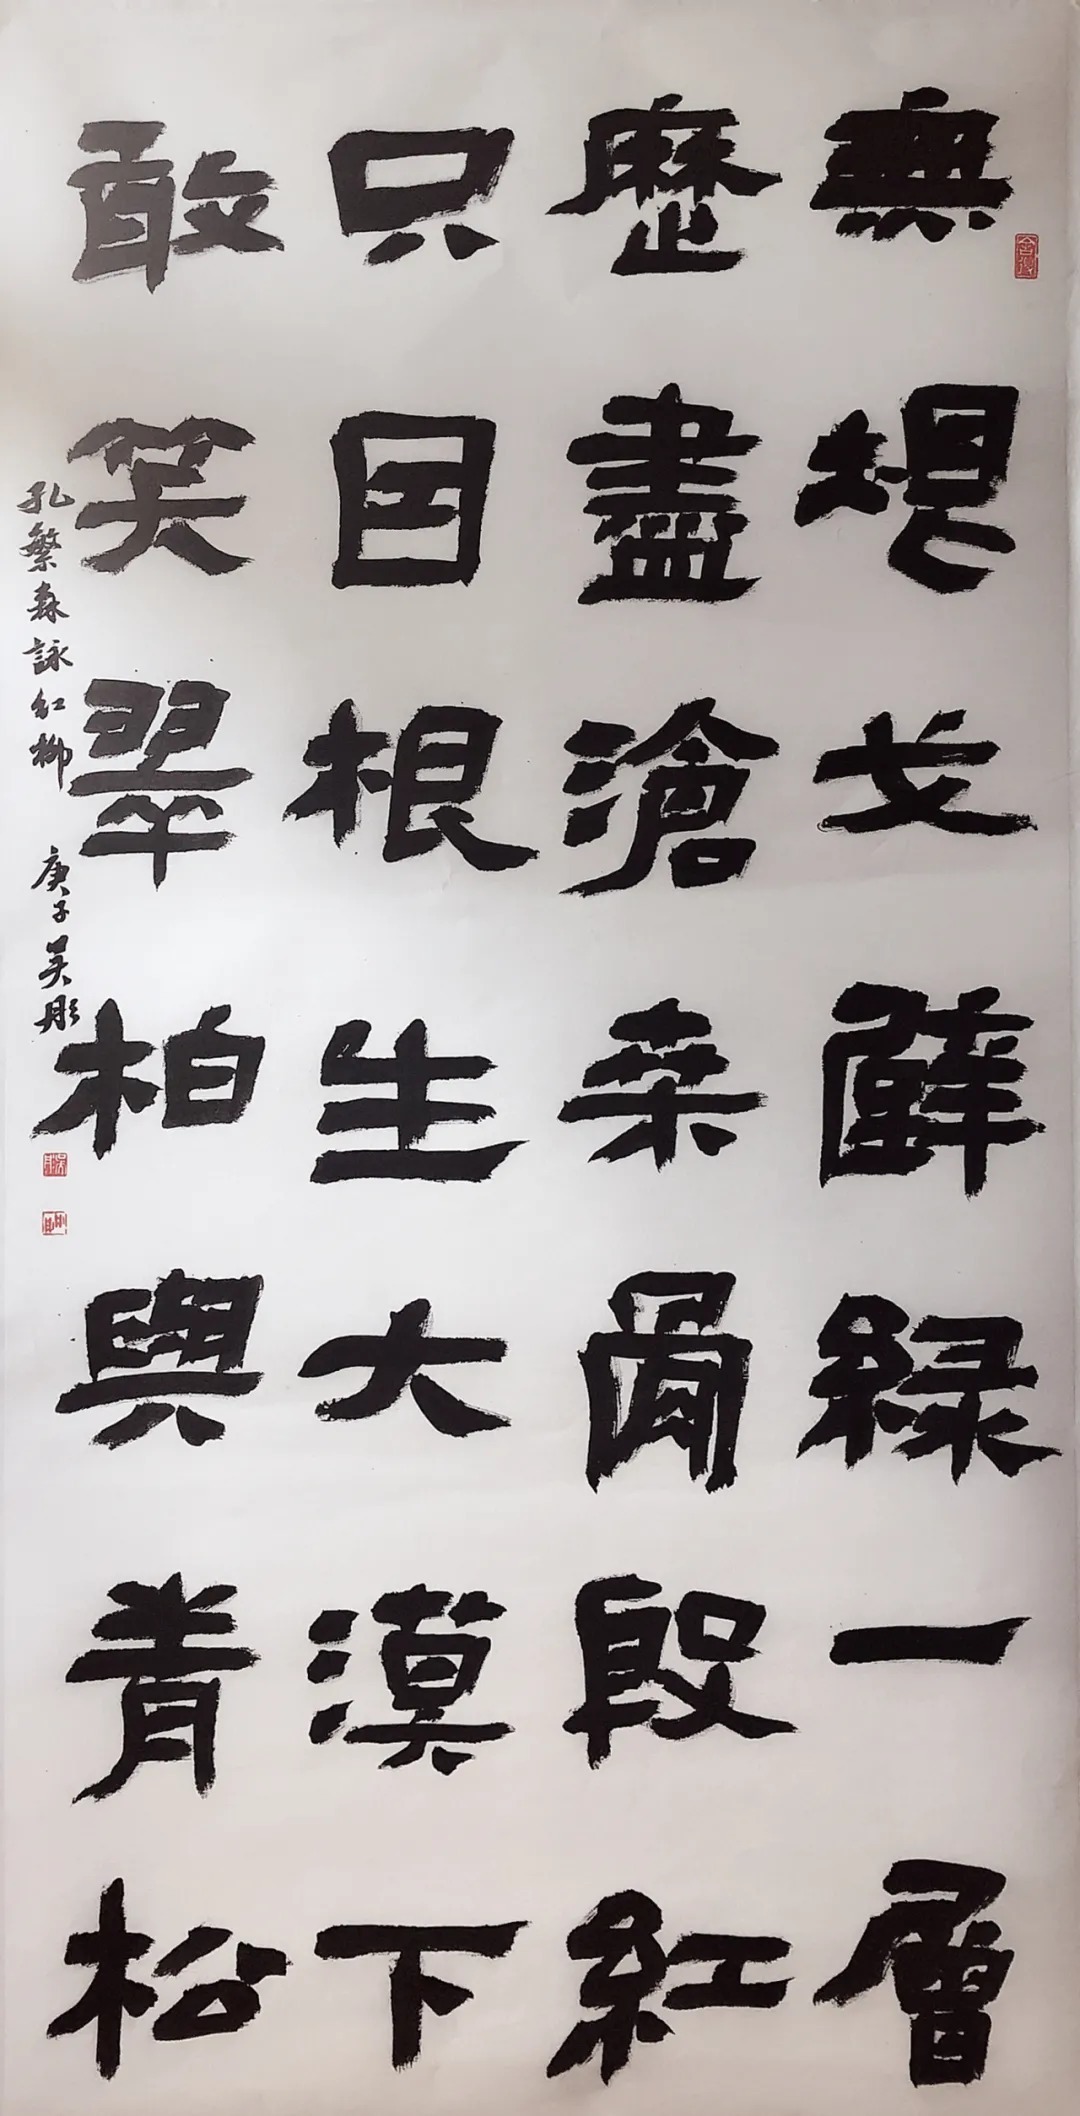 無垠戈壁綠一層
歷盡滄桒骨殷紅
只因根生大漠下
敢笑翠柏與青松
孔繁森詠紅柳 庚子吴彤